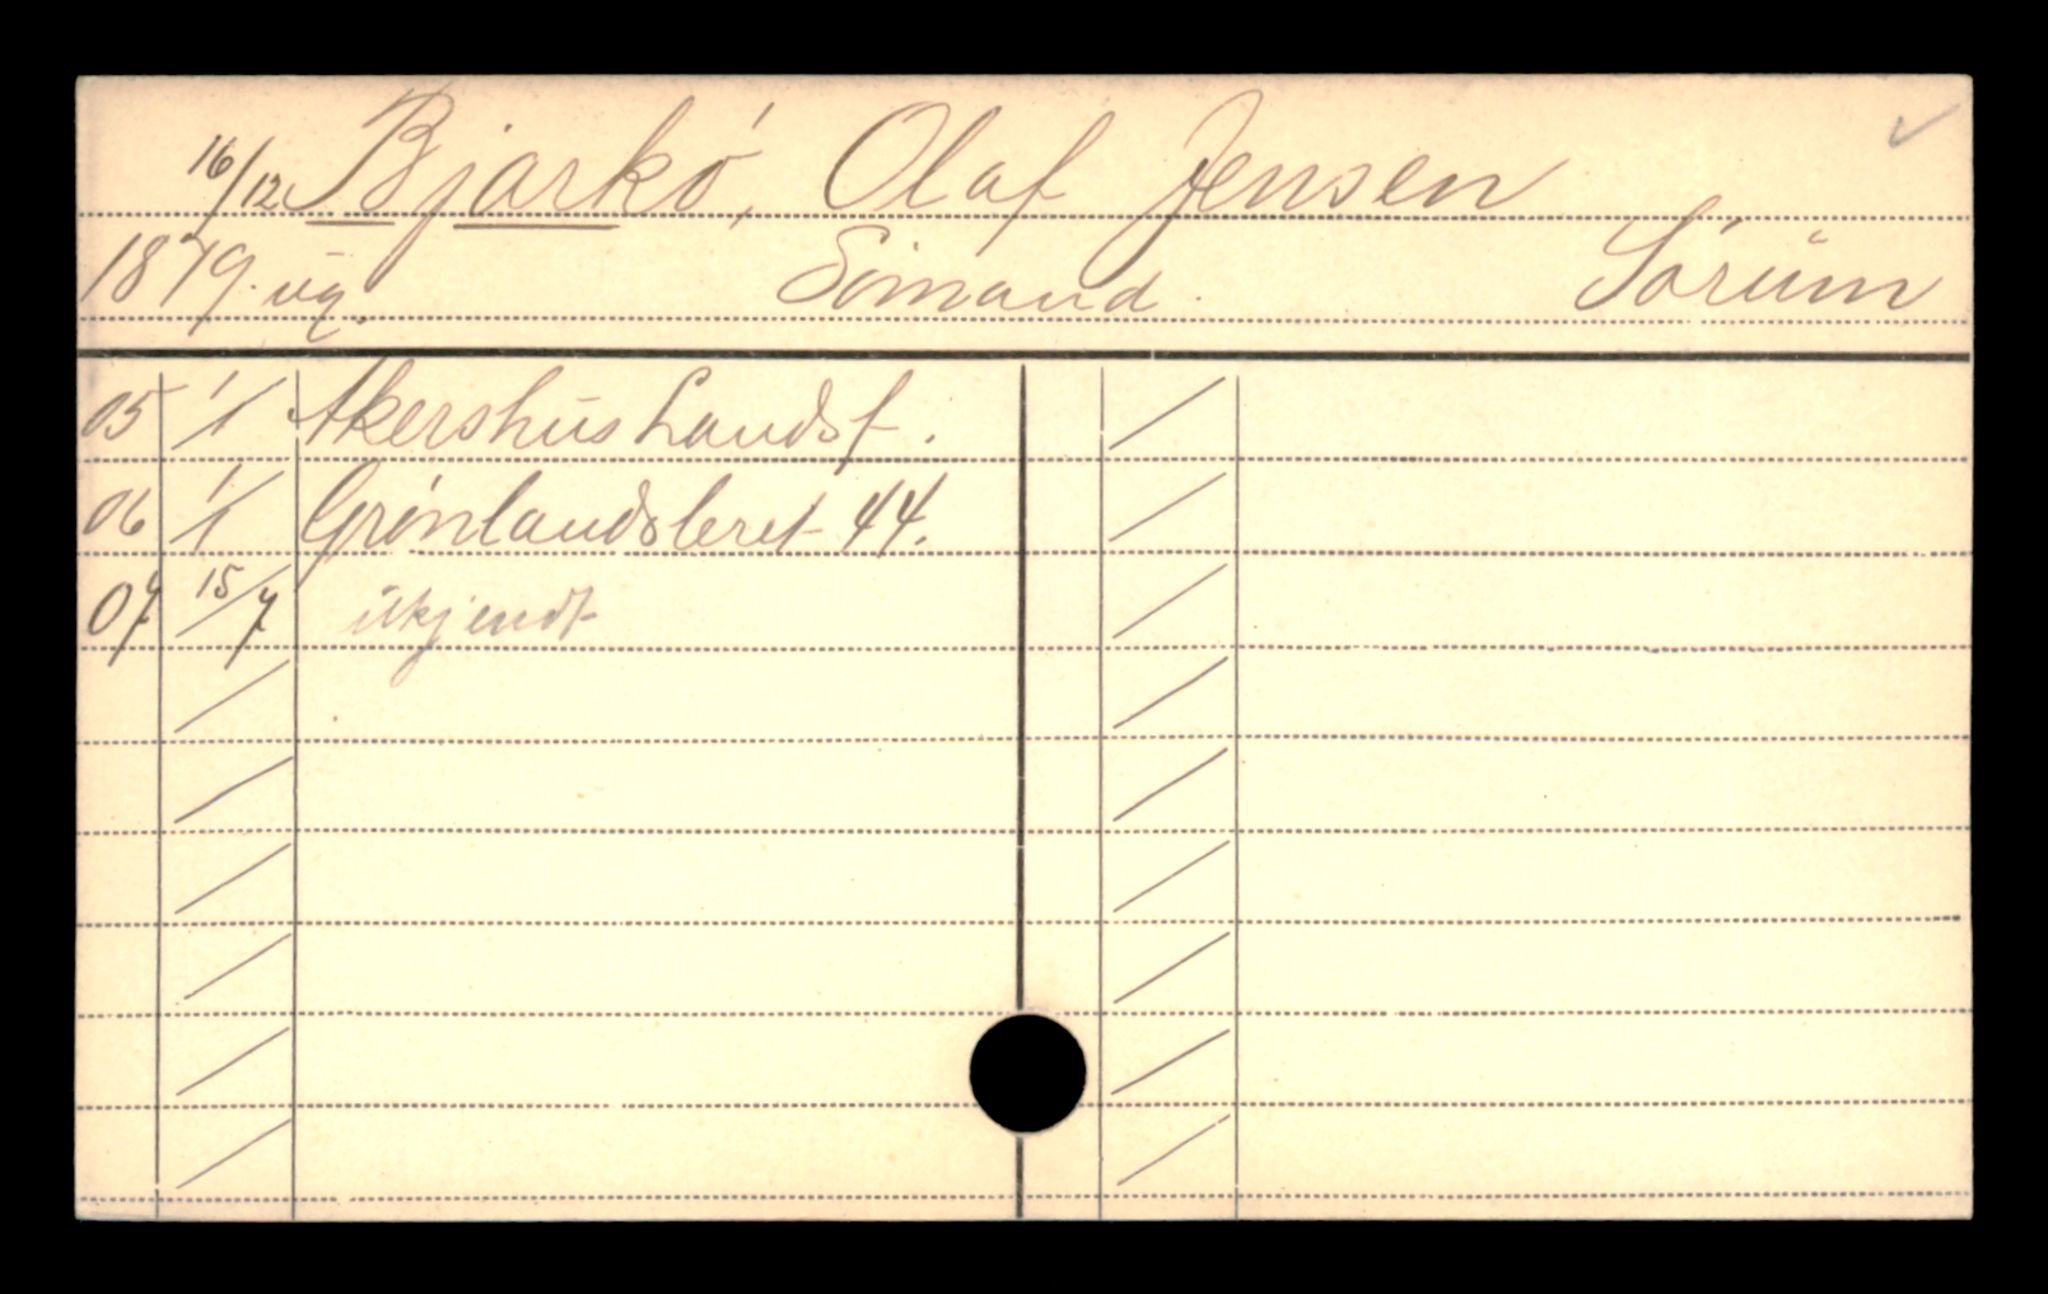 16/12 Bjarkó, Olaf Jensen
1879. ug. Sómand. Sórum
05 1/1 Akershus Landsf.
06 1/1 Grønlandsleret 44.
07 15/7 ukjendt